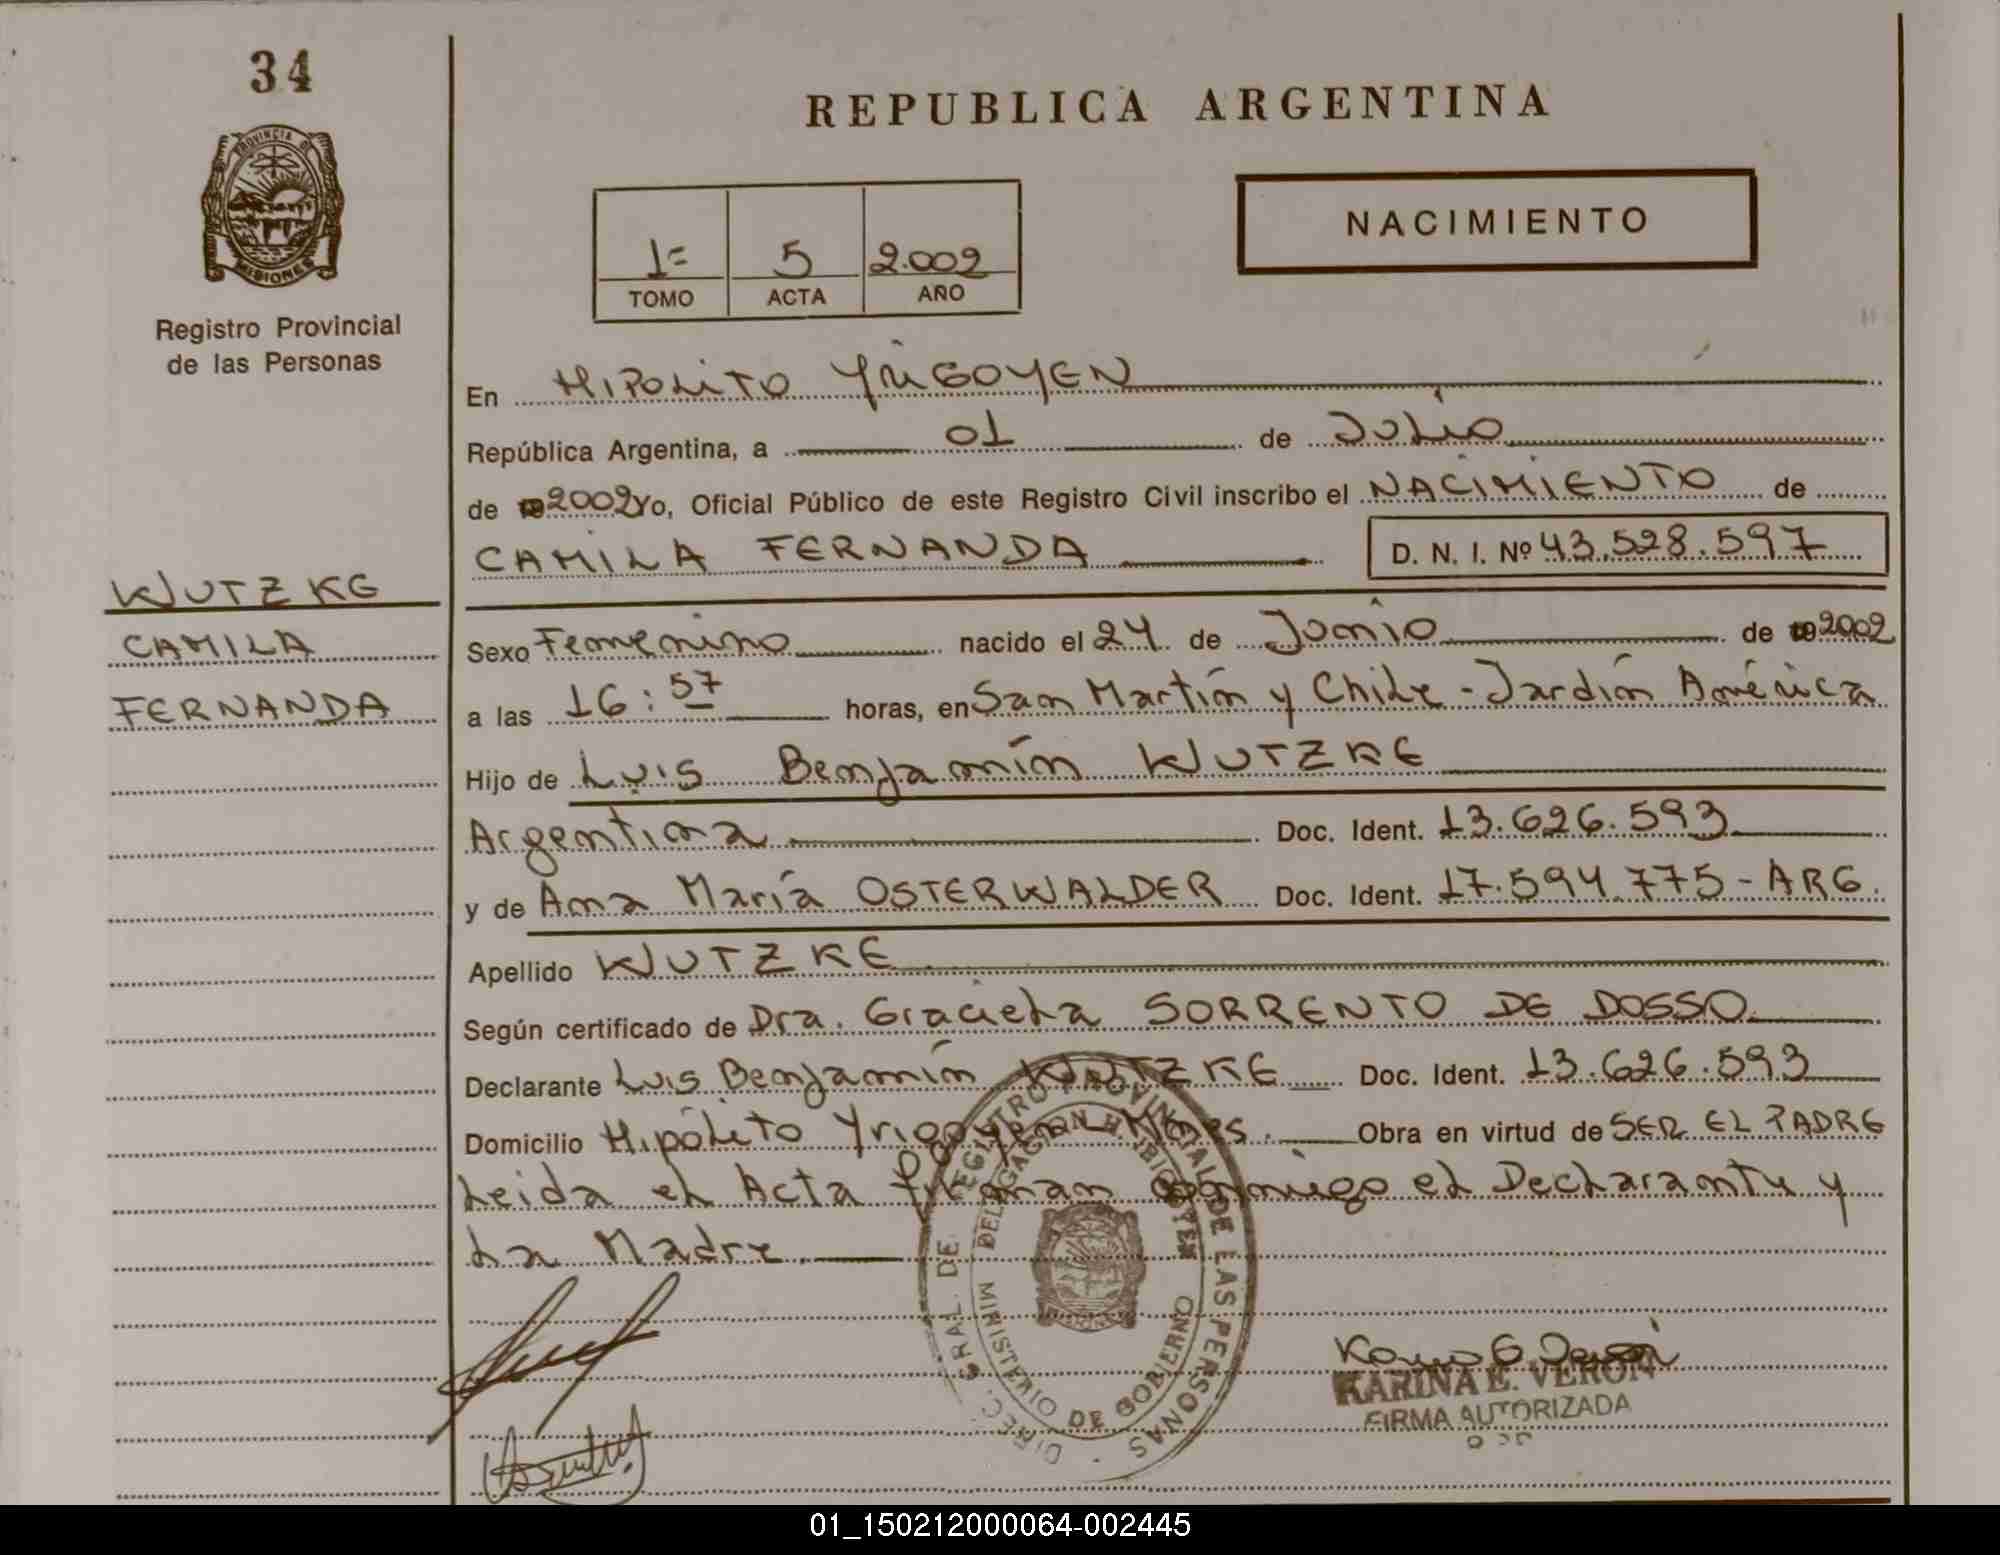 34
PROVINCIA DE
MISIONES
Registro Provincial
de las Personas
REPUBLICA ARGENTINA
NACIMIENTO
1= 5 2.002
TOMO ACTA AÑO
En HIPOLITO YRIGOYEN
República Argentina, a 01 de Julio
de 2002 Yo, Oficial Público de este Registro Civil inscribo el NACIMIENTO de
CAMILA FERNANDA D. N. I. Nº 43.528.597
KWUTZKE
CAMILA
FERNANDA
Sexo Femenino nacido el 24 de Junio de 2002
a las 16:57 horas, en San Martín y Chile - Jardín América
Hijo de Luis Benjamín KWUTZKE
Argentina Doc. Ident. 13.626.593
y de Ana María OSTERWALDER Doc. Ident. 17.594.775 - ARG.
Apellido KWUTZKE
Según certificado de Dra. Graciela SORRENTO DE DOSSO
Declarante Luis Benjamín KWUTZKE Doc. Ident. 13.626.593
Domicilio Hipólito Yrigoyen - Mnes. Obra en virtud de SER EL PADRE
Leida el Acta firman conmigo el Declarante y
La Madre.
DIREC. GRAL. DE REGISTRO PROVINCIAL DE LAS PERSONAS
DELEGACION H. IRIGOYEN
MINISTERIO DE GOBIERNO
KARINA E. VERON
FIRMA AUTORIZADA
01_150212000064-002445